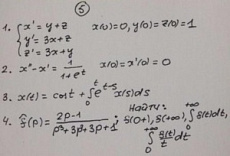 5
1. { x' = y + z    x(0)=0, y(0)=z(0)=1
y' = 3x + z
z' = 3x + y
2. x''-x' = 1/(1+e^t)    x(0)=x'(0)=0
3. x(t) = cost + ∫_0^t e^(t-s) x(s) ds
4. f̂(p) = (2p-1)/(p³+3p²+3p+1). Найти: f(0+), f(+∞), ∫_0^(+∞) f(t)dt,
∫_0^(+∞) f(t)/t dt